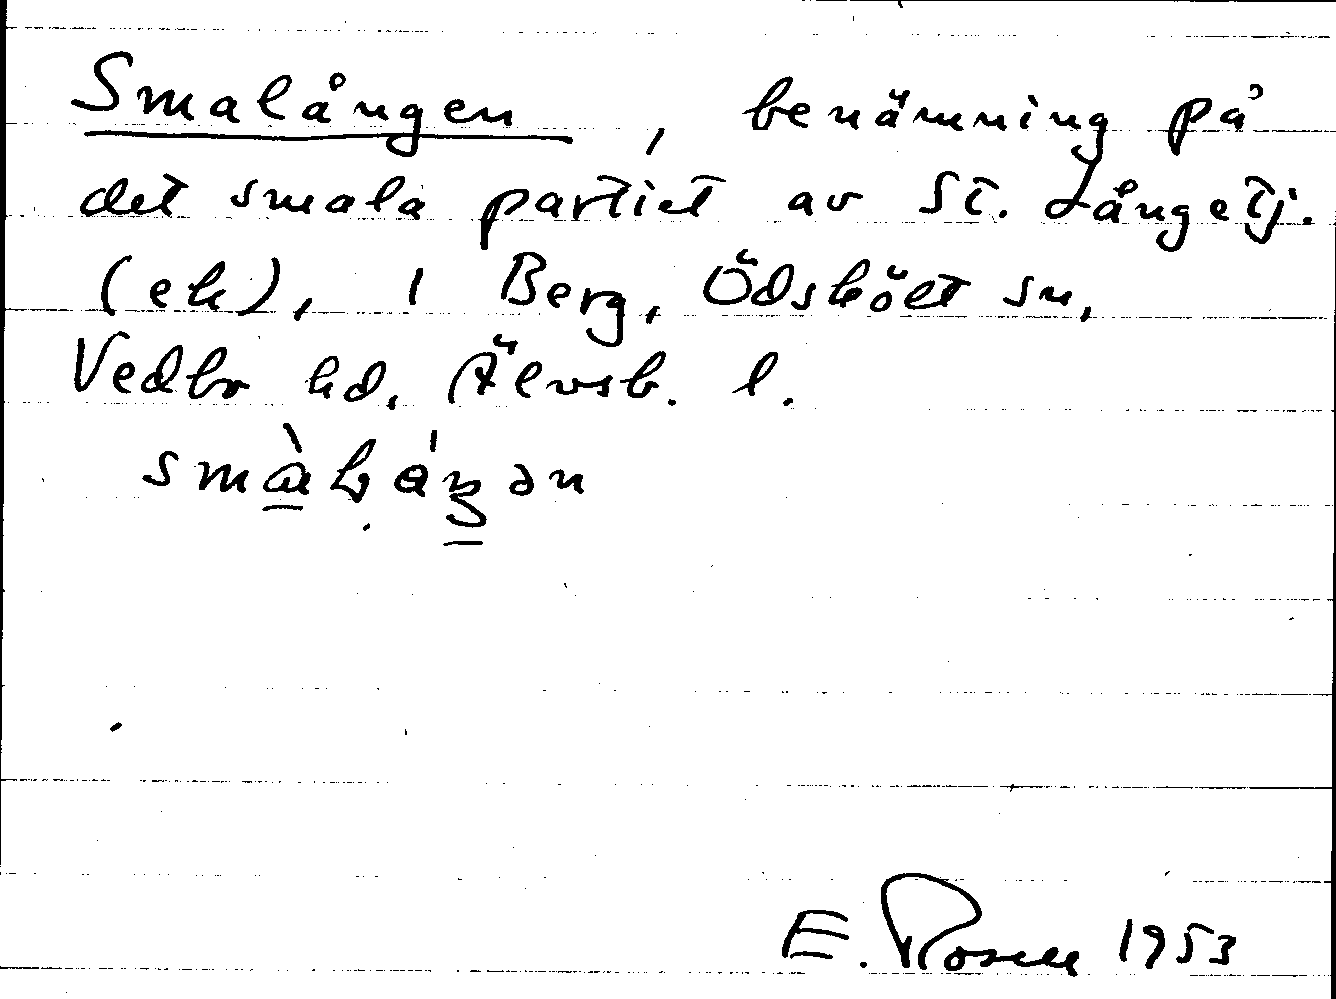 Smalången, benämning på
det smala partiet av St. Långetj.
(ek), i Berg, Ödskölt sn,
Vedbo hd, Älvsb. l.
E. Rosell 1953